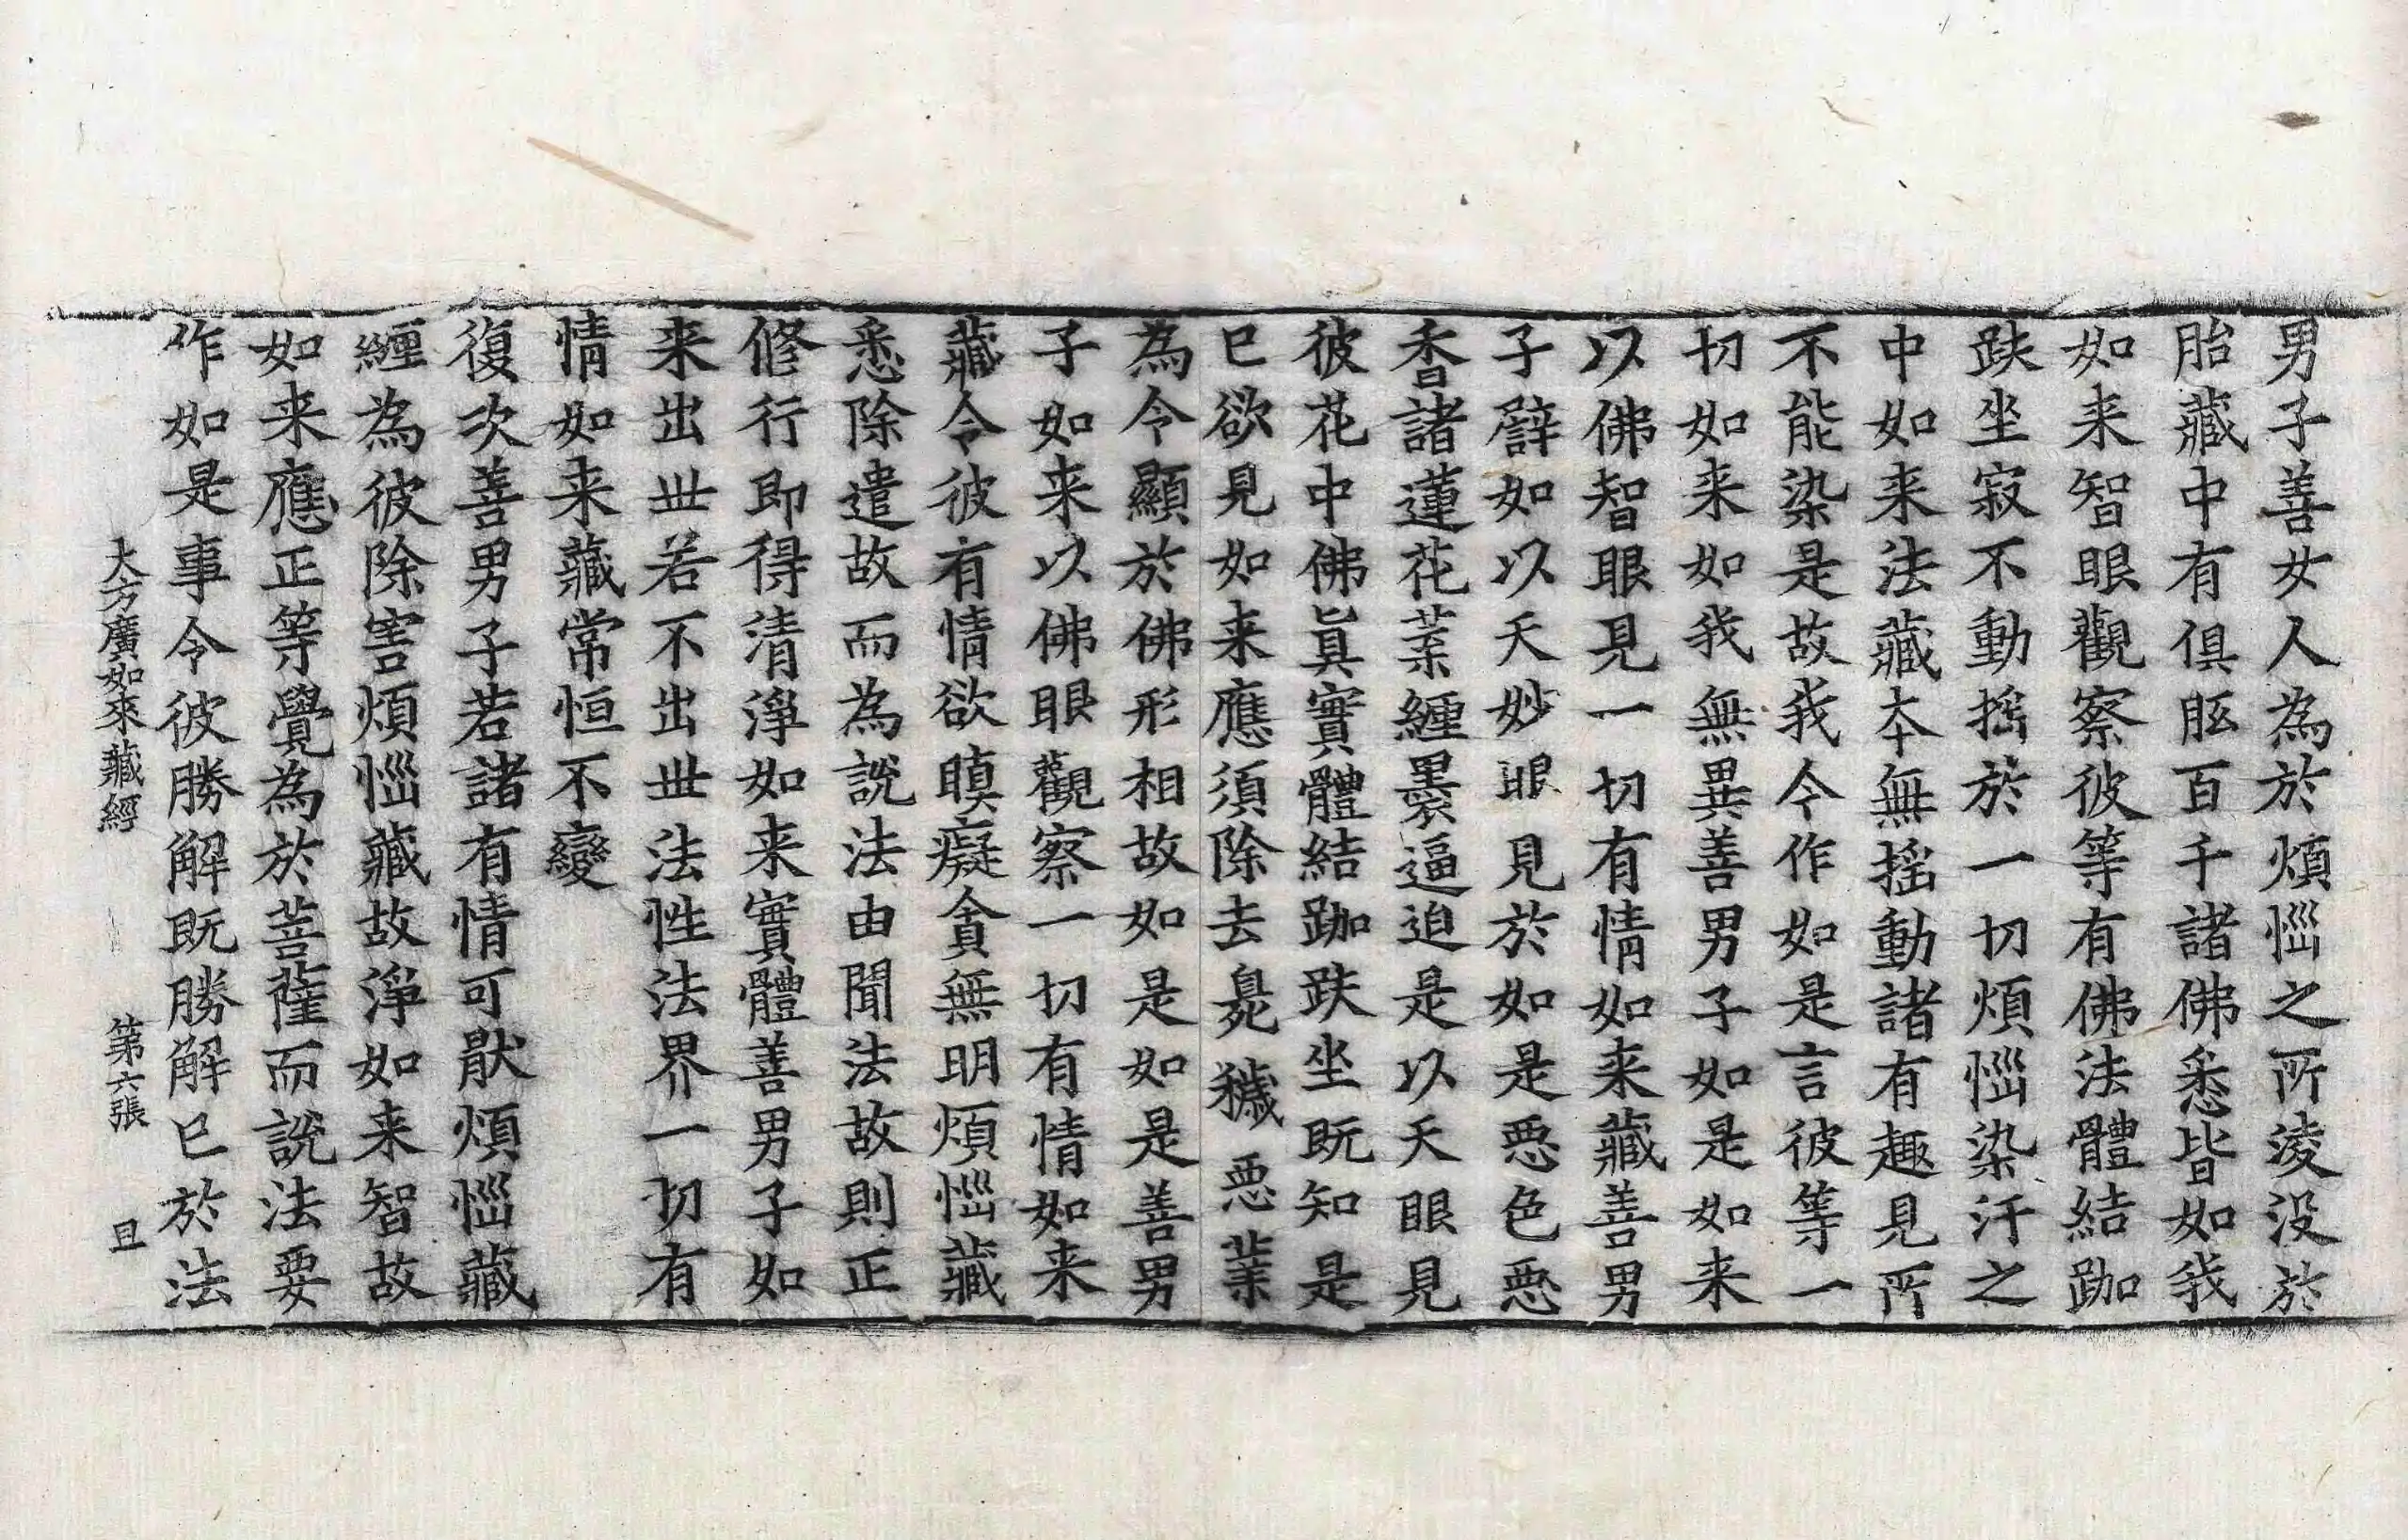 男子善女人為於煩惱之所淩没於
胎藏中有俱胝百千諸佛悉皆如我
如来智眼觀察彼等有佛法體結跏
趺坐寂不動搖於一切煩惱染汙之
中如来法藏本無摇動諸有趣見所
不能染是故我今作如是言彼等一
切如来如我無異善男子如是如来
以佛智眼見一切有情如来藏善男
子譬如以天妙眼見於如是惡色惡
香諸蓮花葉纏裹逼迫是以天眼見
彼花中佛真實體結跏趺坐既知是
已欲見如来應須除去臰穢惡業
為令顯於佛形相故如是如是善男
子如来以佛眼觀察一切有情如来
藏令彼有情欲瞋癡貪無明煩惱藏
悉除遣故而為說法由聞法故則正
修行即得清淨如来實體善男子如
来出世若不出世法性法界一切有
情如来藏常恒不變
復次善男子若諸有情可猒煩惱藏
纏為彼除害煩惱藏故淨如来智故
如来應正等覺為於菩薩而說法要
作如是事令彼勝解既勝解已於法
大方廣如來藏經 第六張 旦